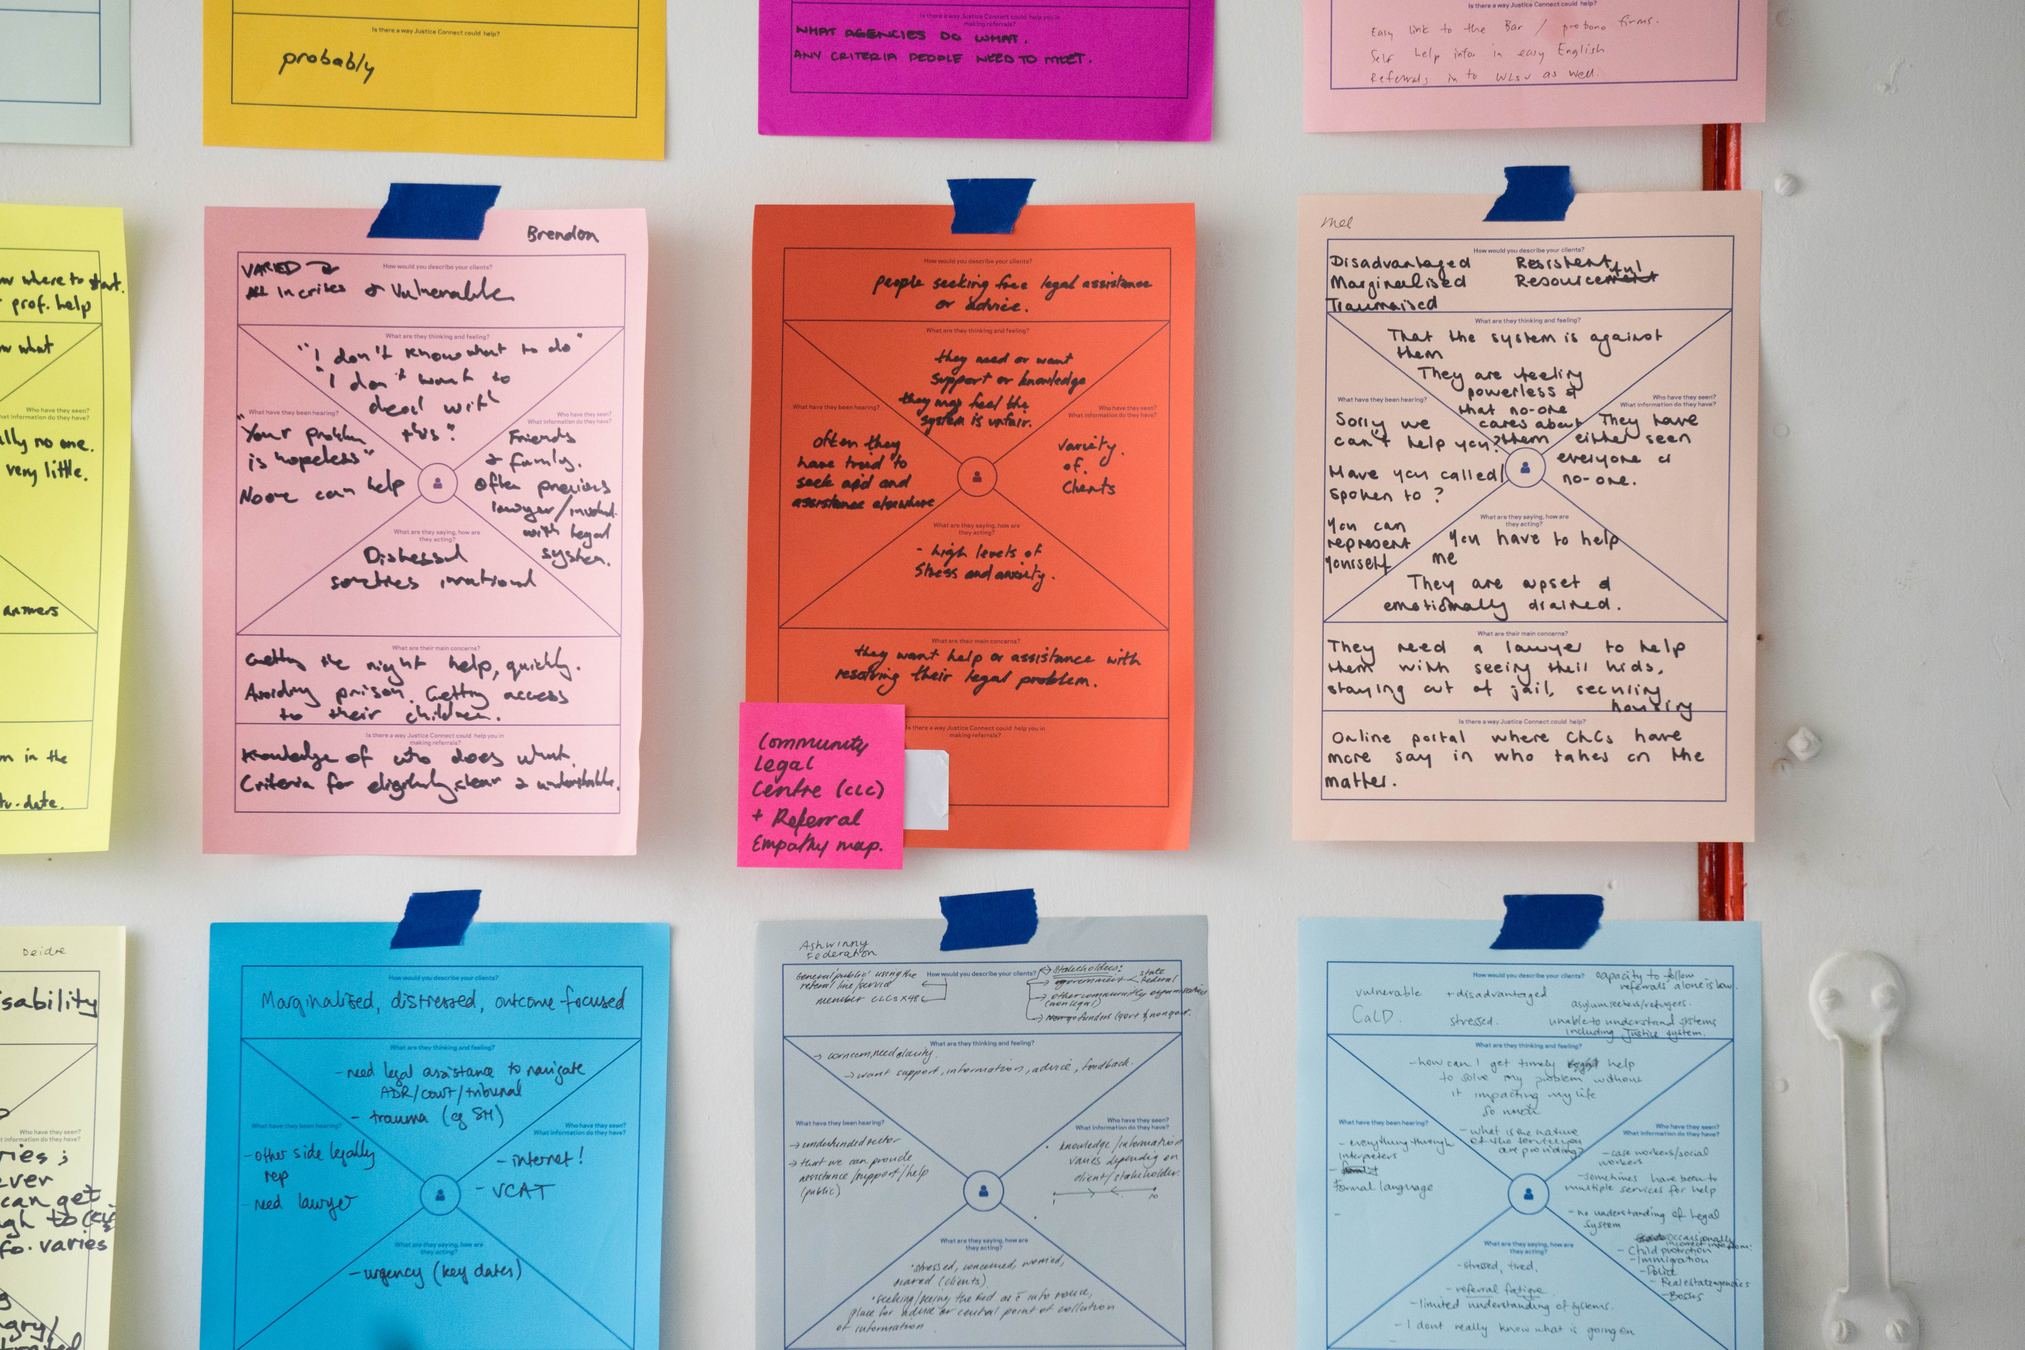 Is there a way Justice Connect could help?
probably
Is there a way Justice Connect could help you in
making referrals?
WHAT AGENCIES DO WHAT.
ANY CRITERIA PEOPLE NEED TO MEET.
Is there a way Justice Connect could help?
Easy link to the Bar / probono firms.
Self help infor in easy English
Referrals in to WLSV as well.
where to start.
prof. help
what
Who have they seen?
What information do they have?
no one.
very little.
answers
in the
date.
Brendon
How would you describe your clients?
VARIED
All In crises & Vulnerable
What are they thinking and feeling?
"I don't know what to do"
"I don't want to
deal with
this"
What have they been hearing?
"Your problem
is hopeless"
No one can help
Who have they seen?
What information do they have?
Friends
& family.
often previous
lawyer/
with legal
system.
What are they saying, how are
they acting?
Distressed
sometimes irrational
What are their main concerns?
Getting the right help, quickly.
Avoiding prison. Getting access
to their children.
Is there a way Justice Connect could help you in
making referrals?
Knowledge of who does what.
Criteria for eligibility clear & understandable.
How would you describe your clients?
people seeking free legal assistance
or advice.
What are they thinking and feeling?
they need or want
support or knowledge
they may feel the
system is unfair.
What have they been hearing?
often they
have tried to
seek aid and
assistance elsewhere
Who have they seen?
What information do they have?
variety
of
clients
What are they saying, how are
they acting?
- high levels of
stress and anxiety.
What are their main concerns?
they want help or assistance with
resolving their legal problem.
is there a way Justice Connect could help you in
making referrals?
Community
Legal
Centre (CLC)
+ Referral
Empathy map.
Mel
How would you describe your clients?
Disadvantaged Resistent
Marginalised Resourceful
Traumatised
What are they thinking and feeling?
That the system is against
them
They are feeling
powerless &
that no-one
cares about
them
What have they been hearing?
Sorry we
can't help you?
Have you called/
spoken to?
You can
represent
yourself
Who have they seen?
What information do they have?
They have
either seen
everyone or
no-one.
What are they saying, how are
they acting?
You have to help
me
They are upset &
emotionally drained.
What are their main concerns?
They need a lawyer to help
them with seeing their kids,
staying out of jail, securing
housing
Is there a way Justice Connect could help?
Online portal where CLCs have
more say in who takes on the
matter.
Deidre
Who have they seen?
What information do they have?
can get
varies
How would you describe your clients?
Marginalised, distressed, outcome-focused
What are they thinking and feeling?
- need legal assistance to navigate
ADR/court/tribunal
- trauma (eg SH)
What have they been hearing?
- other side legally
rep
- need lawyer
Who have they seen?
What information do they have?
- internet!
- VCAT
What are they saying, how are
they acting?
- urgency (key dates)
Ashwinny
Federation
How would you describe your clients?
General 'public' using the
referral line/service
member CLCs x48
Stakeholders:
government state
federal
other community organisations
(non legal)
funders (govt & nongovt.
What are they thinking and feeling?
→ concern, need clarity.
→ want support, information, advice, feedback.
What have they been hearing?
→ underfunded sector
→ that we can provide
assistance/support/help
(public)
Who have they seen?
What information do they have?
knowledge/information
varies depending on
client/stakeholder.
1 10
What are they saying, how are
they acting?
• stressed, concerned, worried,
scared (clients)
place for advice or central point of collation
of information
How would you describe your clients?
capacity to follow
referrals alone is low.
vulnerable + disadvantaged
asylum seekers/refugees.
CaLD. stressed.
unable to understand systems
including justice system.
What are they thinking and feeling?
- how can I get timely help
to solve my problem without
it impacting my life
so much
- what is the nature
of the service you
are providing?
What have they been hearing?
- everything through
interpreters
-
formal language
-
Who have they seen?
What information do they have?
- case workers/social
workers
- sometimes have been to
multiple services for help
- no understanding of legal
system
occasionally
incorrect info from:
- Child protection
- Immigration
- Police
- Real estate agencies
- Bosses
What are they saying, how are
they acting?
- stressed, tired,
- referral fatigue.
- limited understanding of systems.
- I dont really know what is going on